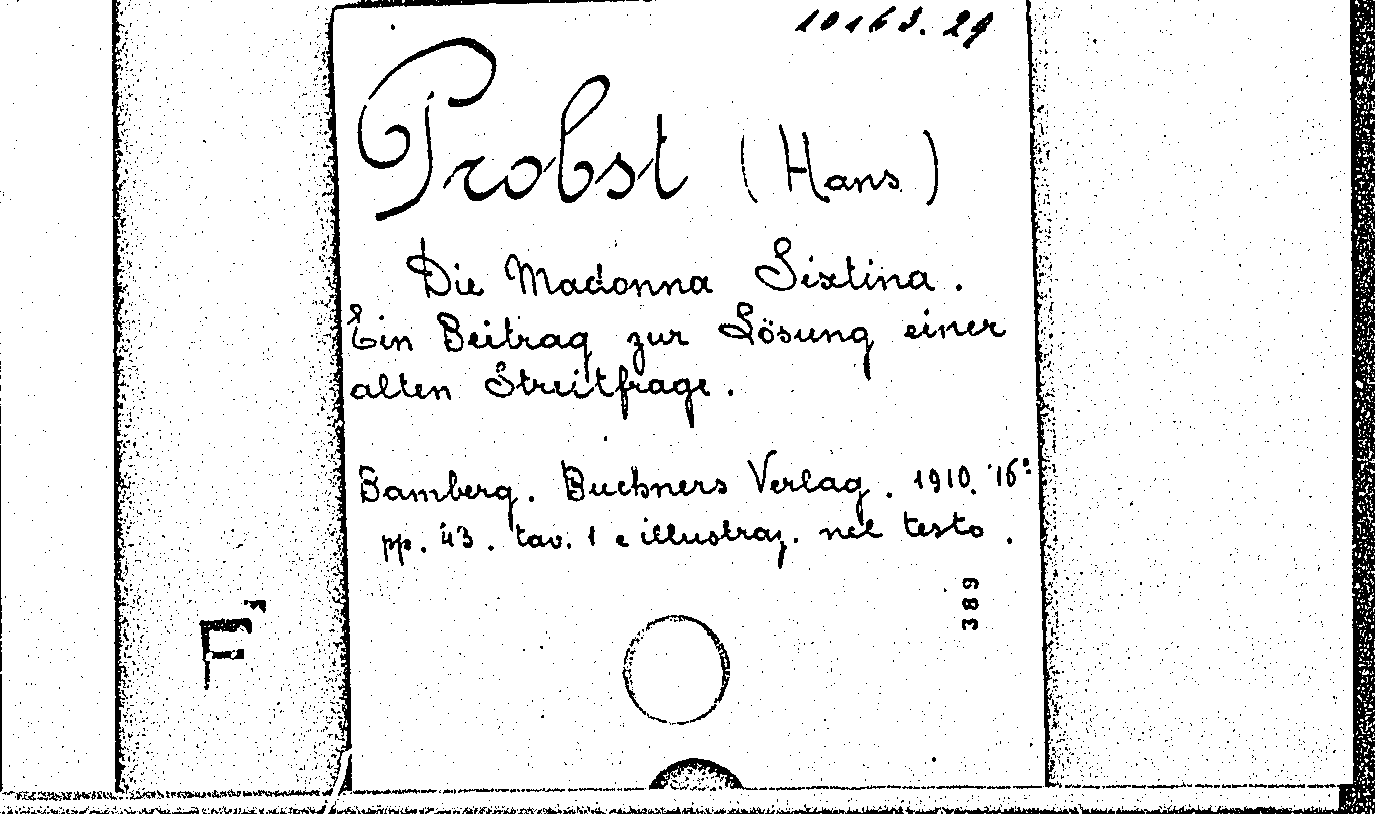 10163.29
Probst (Hans)
Die Madonna Sixtina.
Ein Beitrag zur Lösung einer
alten Streitfrage.
Bamberg. Buchners Verlag. 1910. 16º
pp. 43. tav. 1 e illustraz. nel testo.
389
F